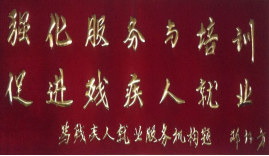 强化服务与培训
促进残疾人就业
为残疾人就业服务机构题 邓朴方